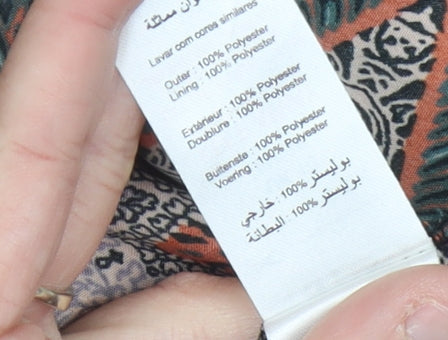 ألوان مماثلة
Lavar com cores similares
Outer : 100% Polyester
Lining : 100% Polyester
Extérieur : 100% Polyester
Doublure : 100% Polyester
Buitenste : 100% Polyester
Voering : 100% Polyester
بوليستر 100% : خارجي
بوليستر 100% : البطانة